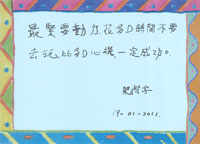 最緊要勤力,花多D時間不要
去玩,比多D心機,一定成功。
19-01-2011